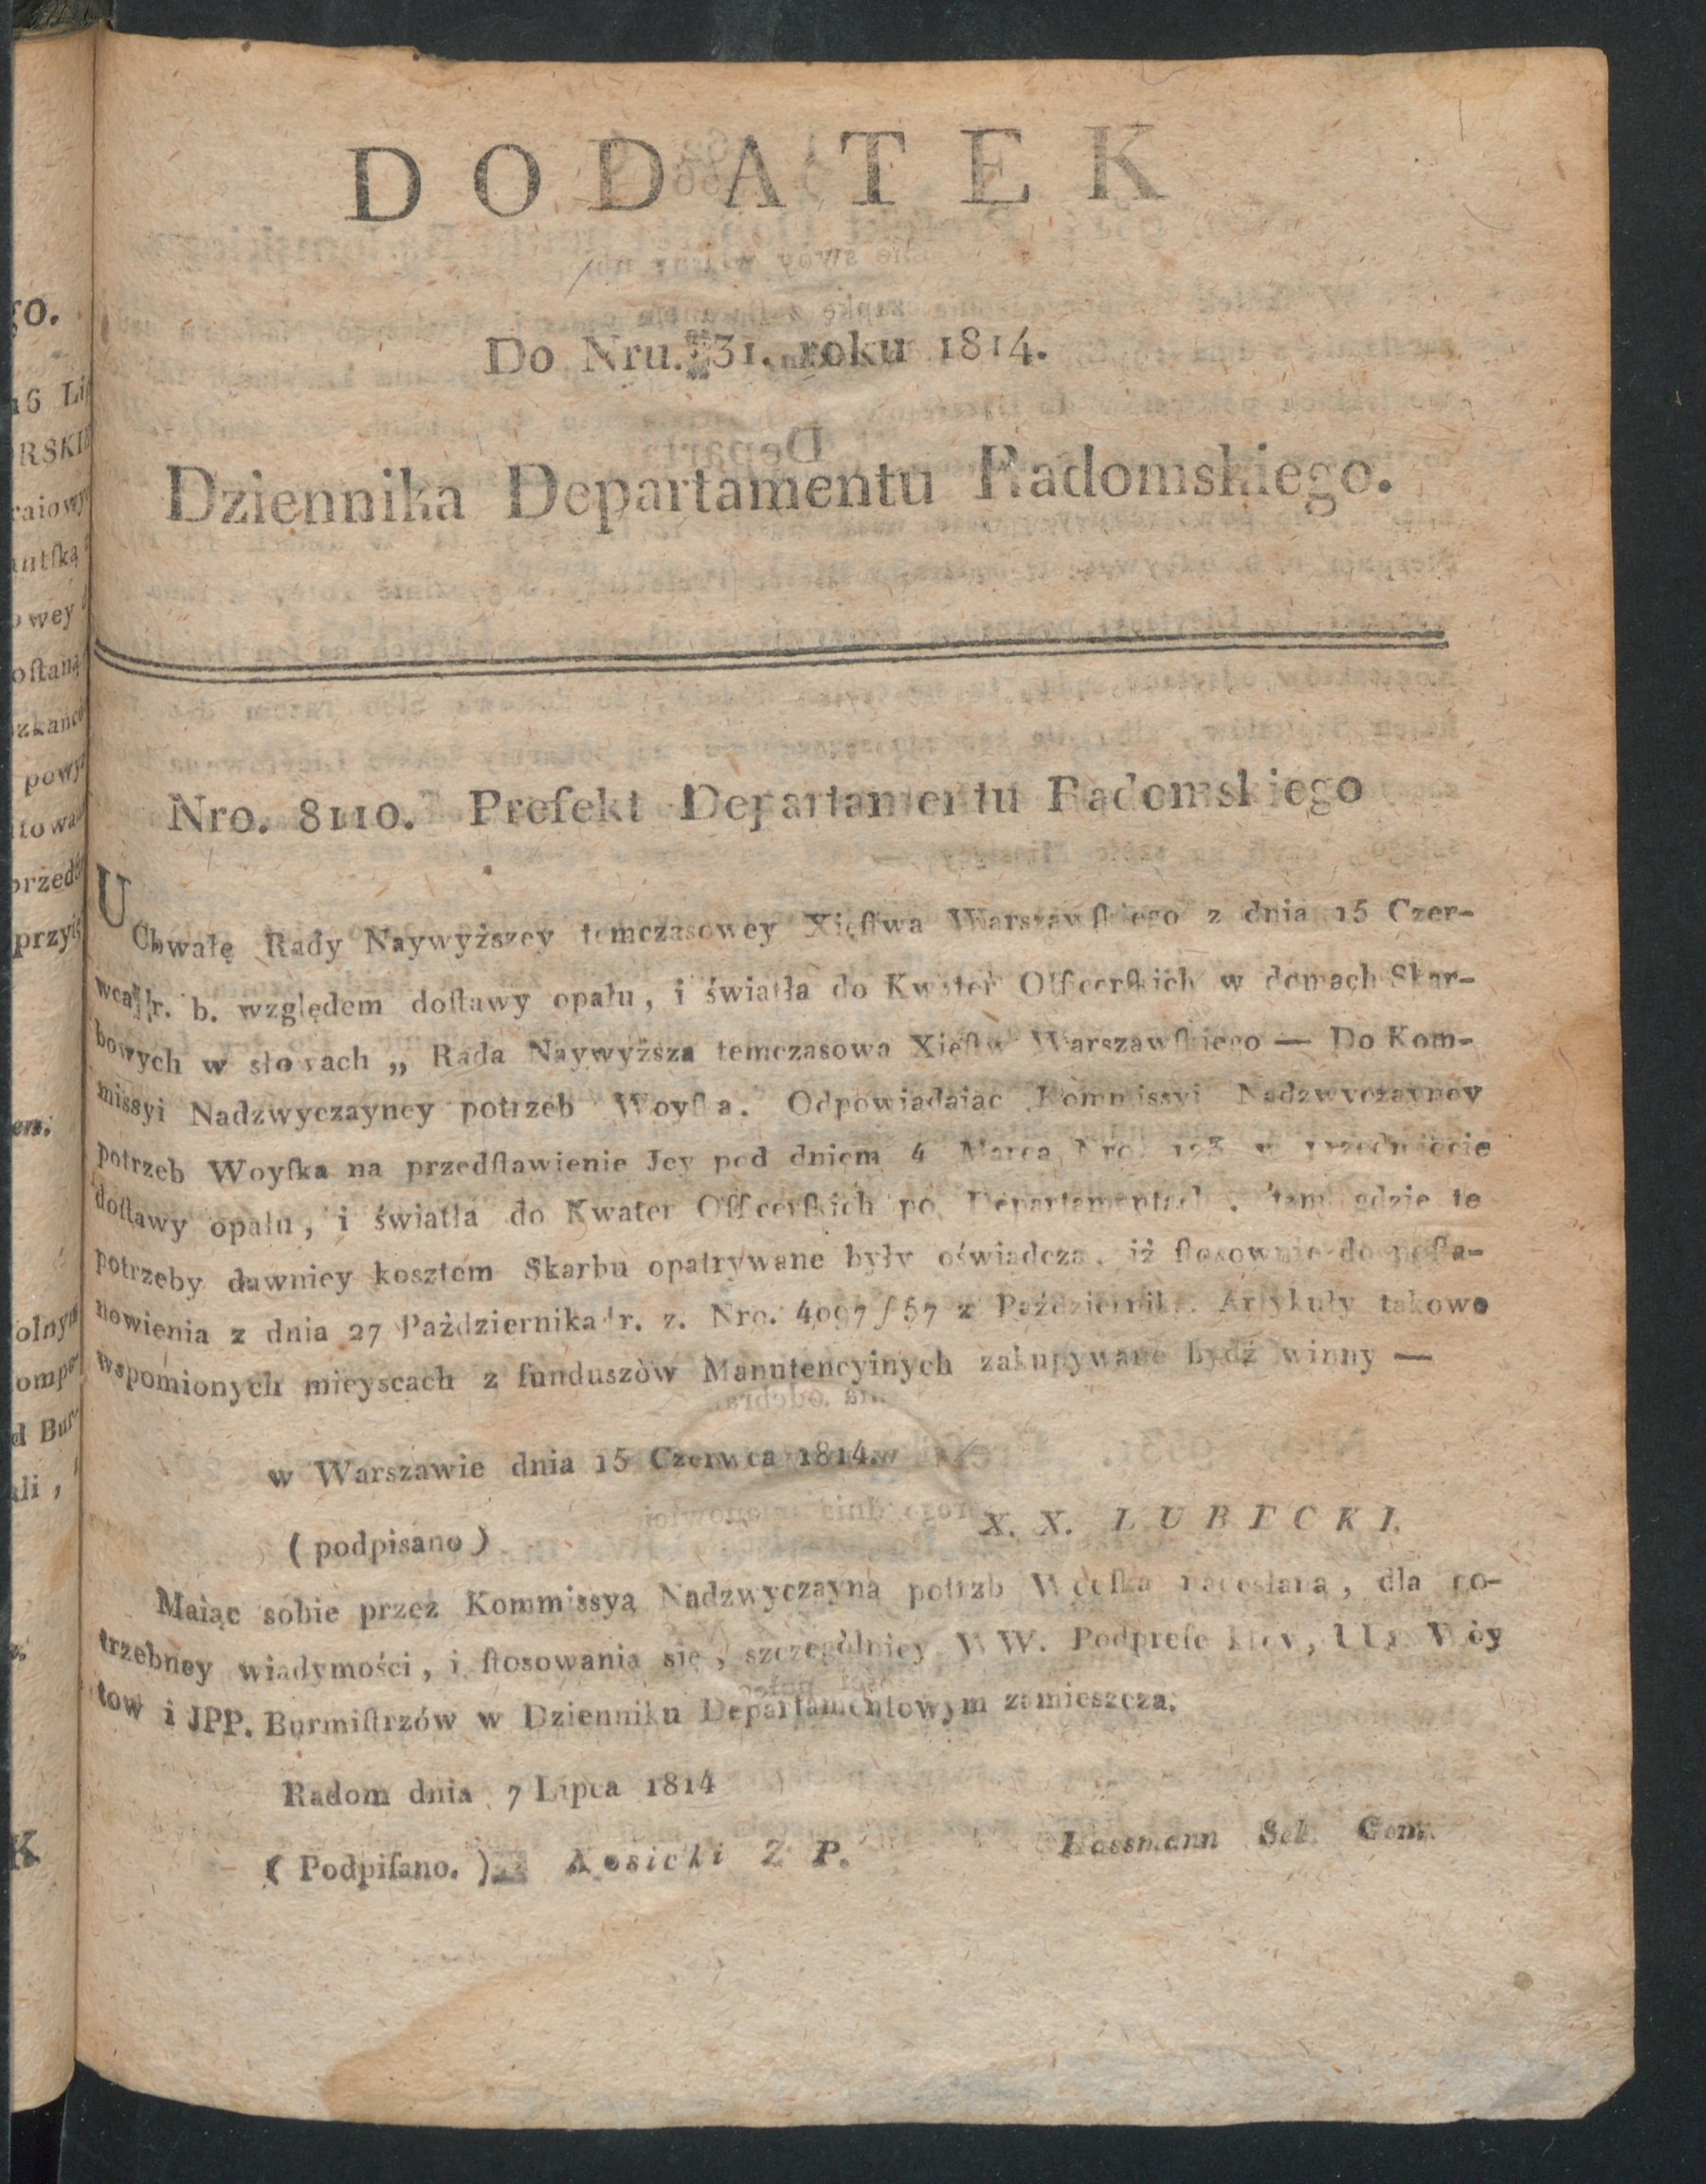 DODATEK
Do Nru. 31. roku 1814.
Dziennika Departamentu Radomskiego.
Nro. 8110. Prefekt Departamentu Radomskiego
UChwałę Rady Naywyższey temczasowey Xięſtwa Warszawſkiego z dnia 15 Czer-
wca r. b. względem doſtawy opału, i światła do Kwater Officerſkich w domach Skar-
bowych w słowach „ Rada Naywyższa temczasowa Xięſtw Warszawſkiego — Do Kom-
missyi Nadzwyczayney potrzeb Woyſka. Odpowiadaiąc Kommissyi Nadzwyczayney
potrzeb Woyſka na przedſtawienie Jey pod dniem 4 Marca Nro. w przedmiocie
doſtawy opału, i światła do Kwater Officerſkich po Departamentach, tam gdzie te
potrzeby dawniey kosztem Skarbu opatrywane były oświadcza, iż ſtosownie do poſta-
nowienia z dnia 27 Października r. z. Nro. 4097ſ57 z Październik. Artykuły takowe
wspomionych mieyscach z funduszòw Manutencyinych zakupywane bydź winny —
w Warszawie dnia 15 Czerwca 1814.
X. X. LUBECKI.
( podpisano )
Maiąc sobie przez Kommissyą Nadzwyczayną potrzb nadesłaną, dla po-
trzebney wiadymości, i ſtosowania się, szczególniey WW. Podprefektov, Wóy
tow i JPP. Burmiſtrzów w Dzienniku Departamentowym zamieszcza.
Radom dnia 7 Lipca 1814
( Podpiſano. ) Kosicki Z P. Hossmann Sek Gem.